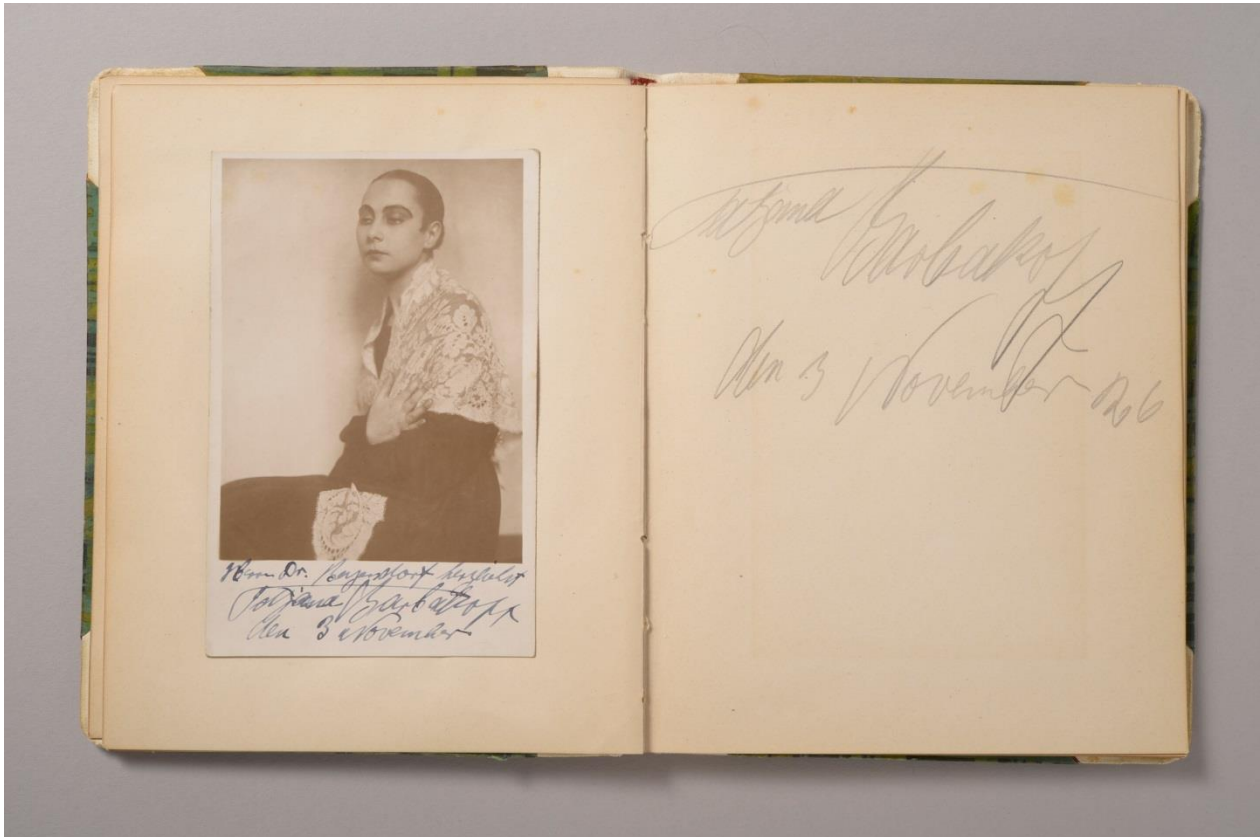 Herrn Dr. herzlichst
Tatjana Barbakoff
den 3 November
Tatjana
Barbakoff
den 3 November 26